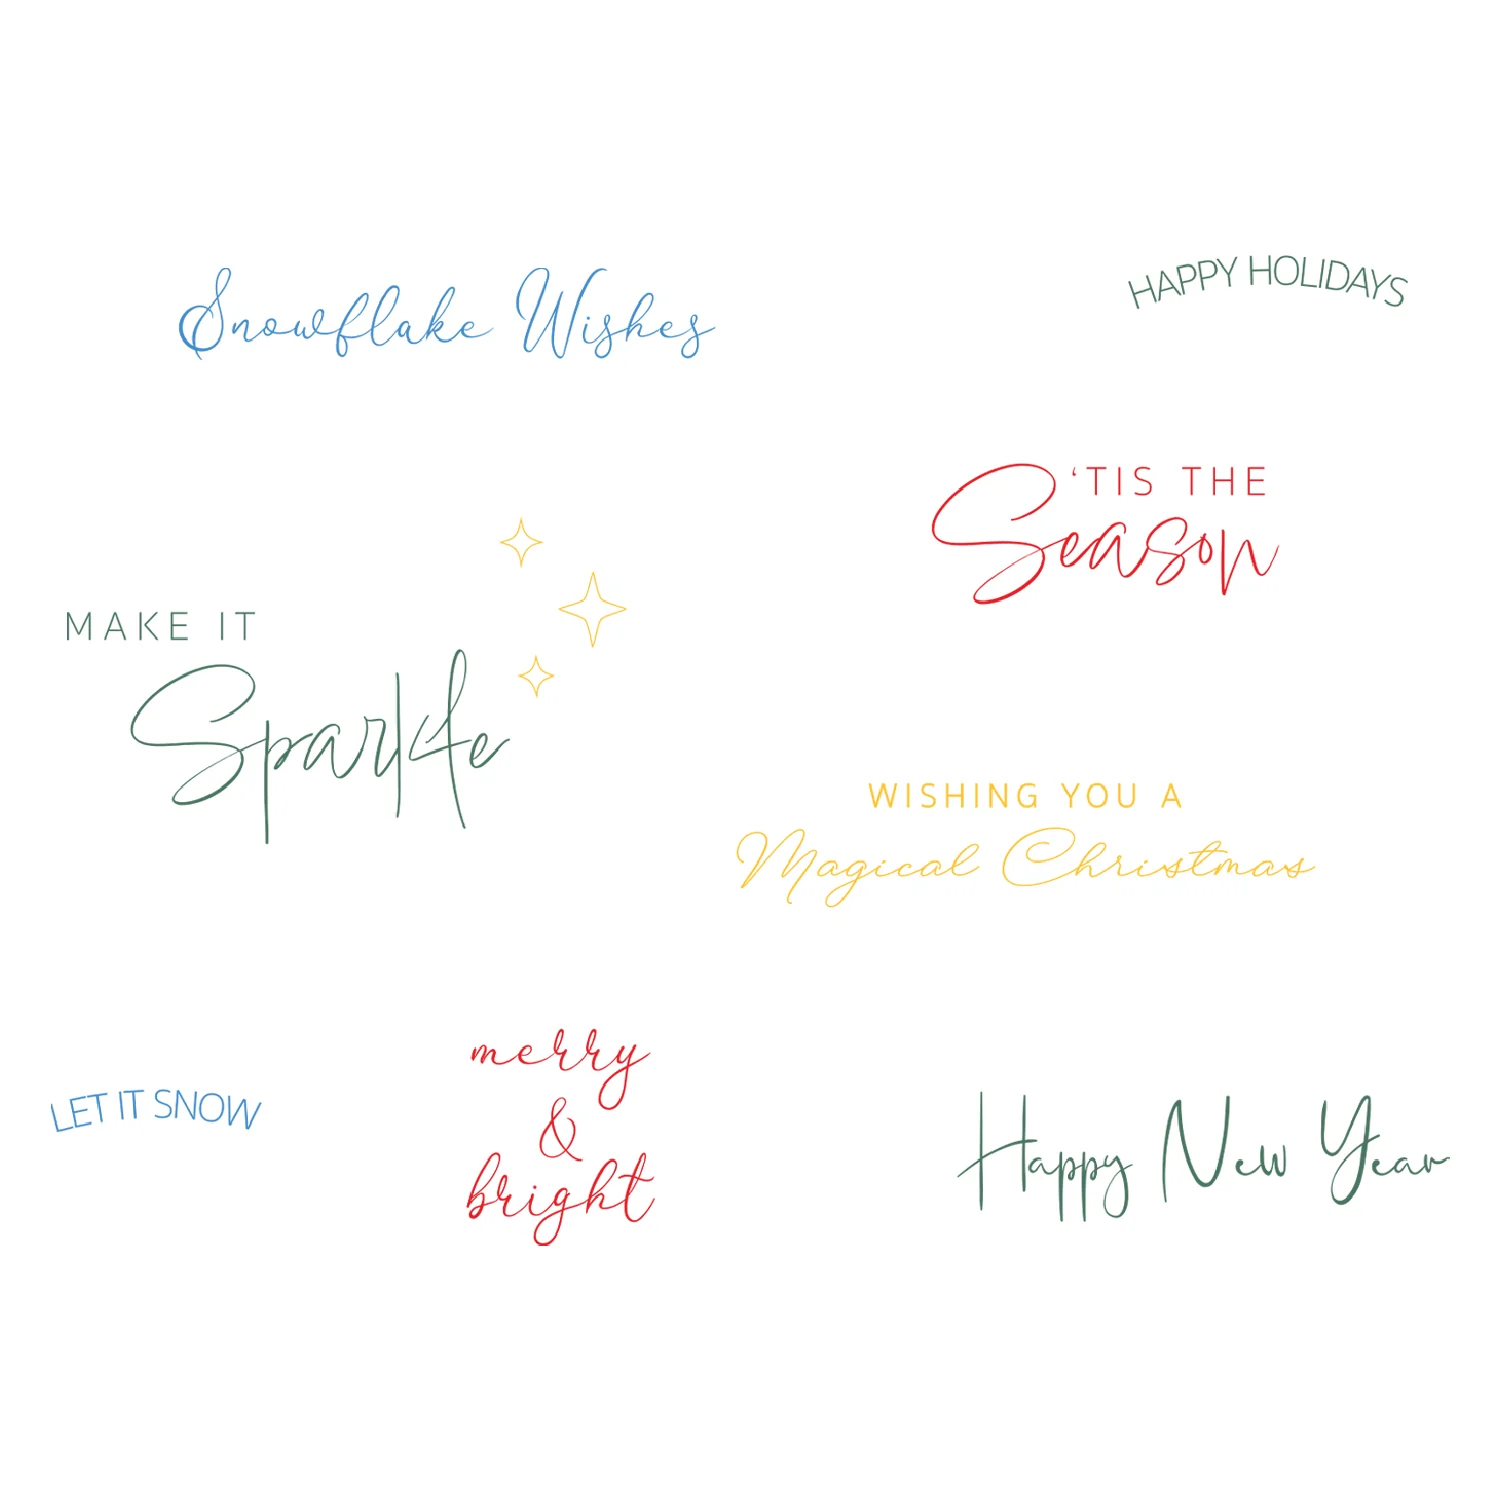 Snowflake Wishes
HAPPY HOLIDAYS
‘TIS THE
Season
MAKE IT
Sparkle
WISHING YOU A
Magical Christmas
merry
&
bright
LET IT SNOW
Happy New Year